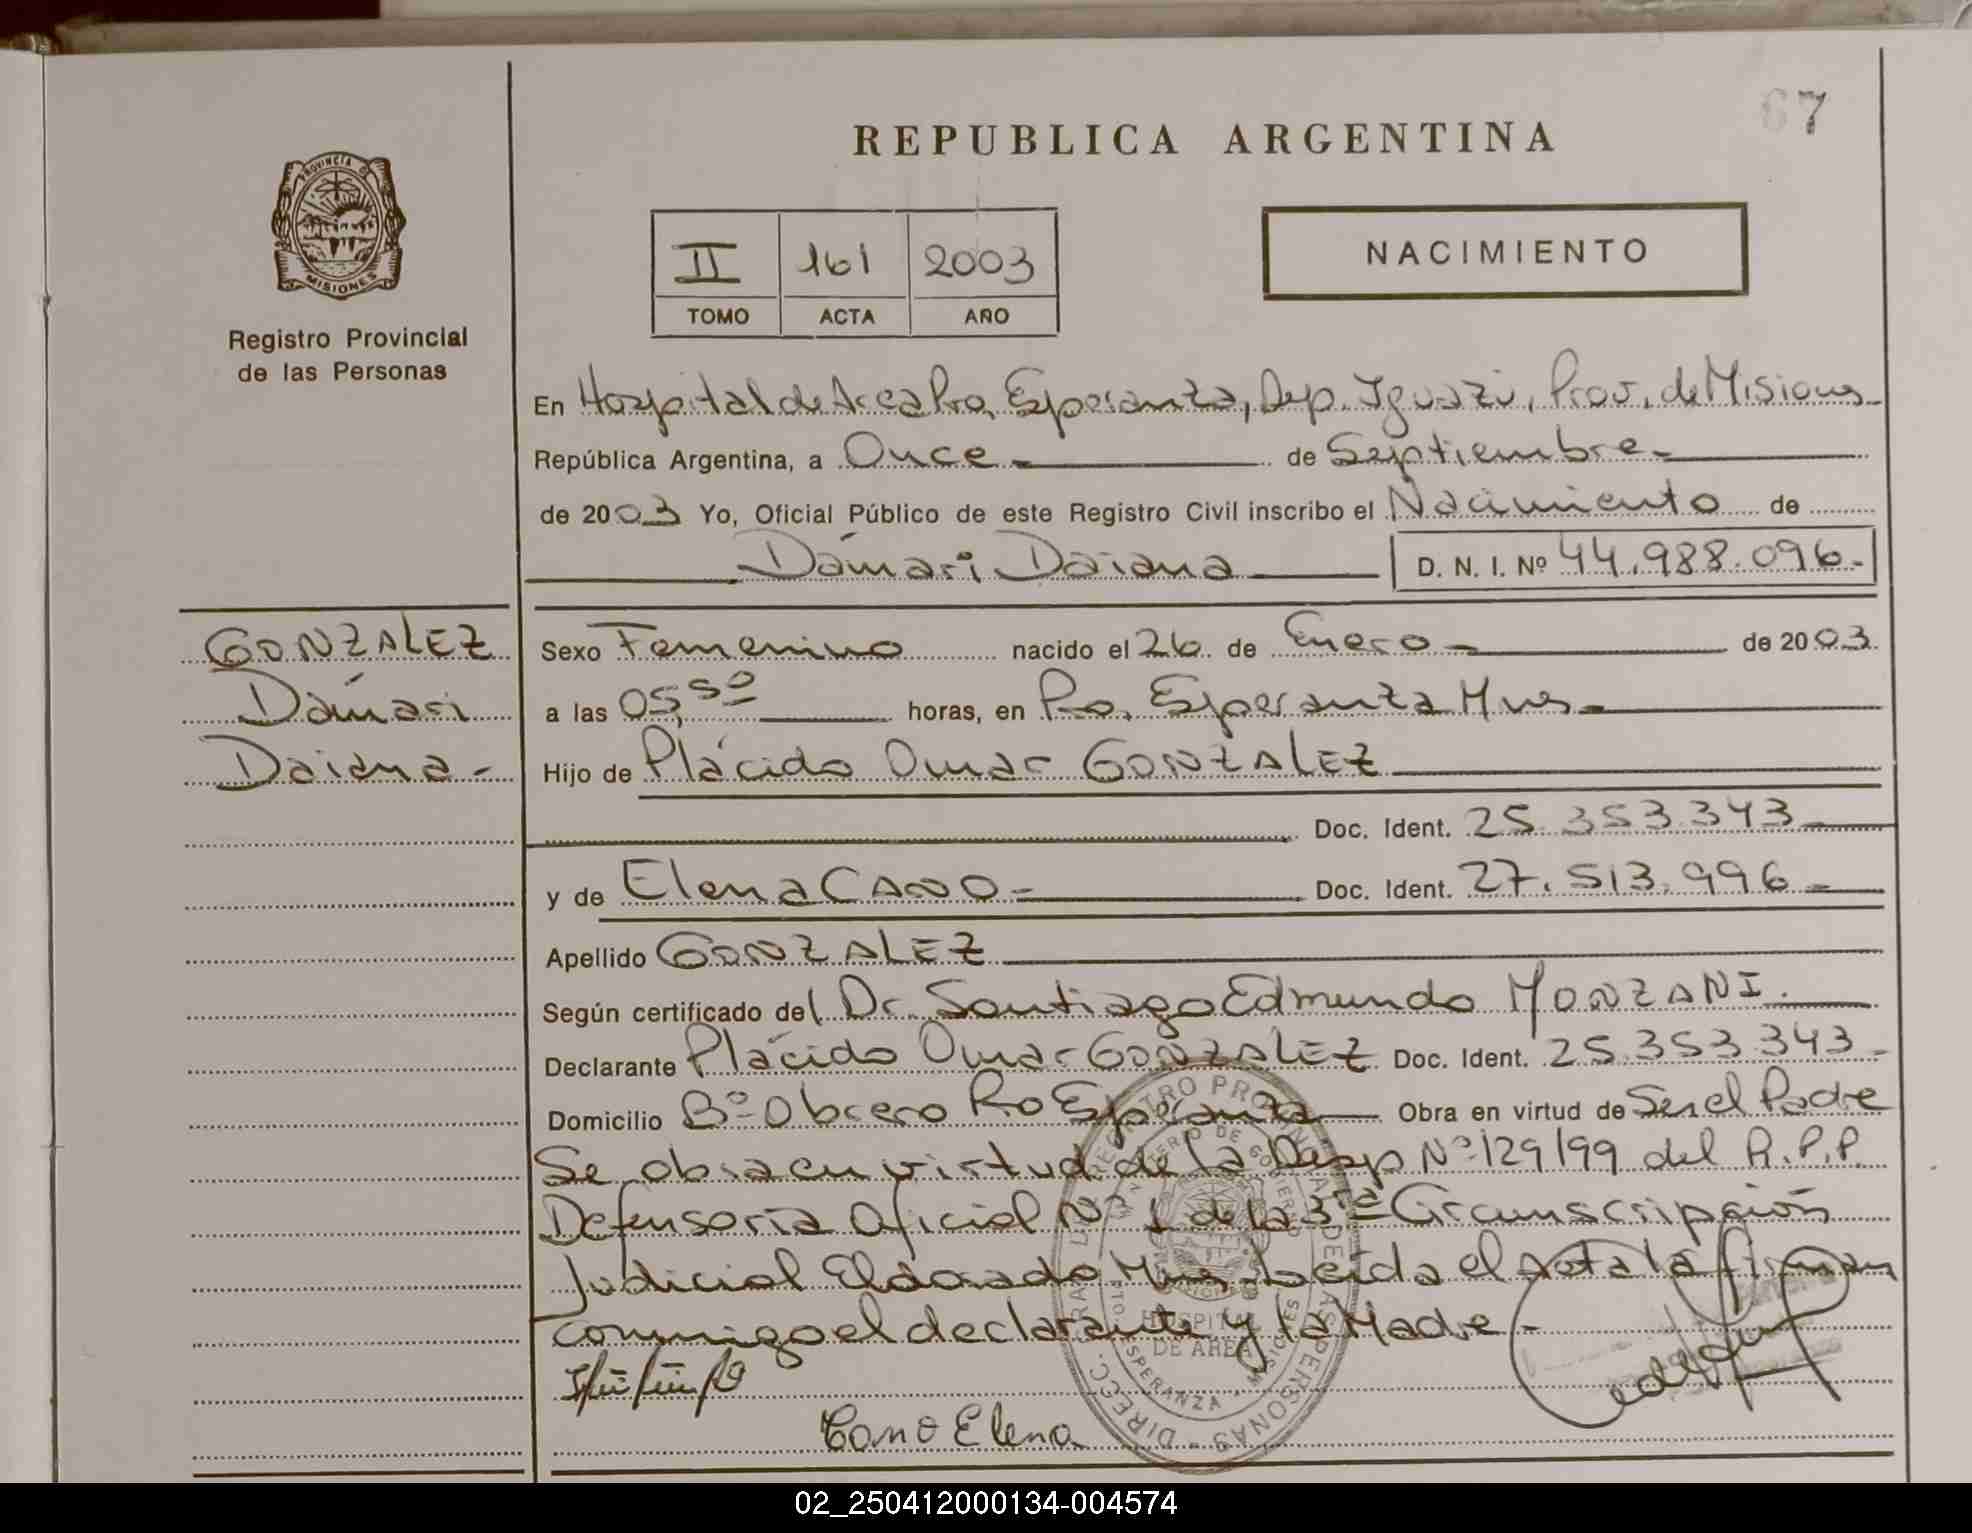 67
REPUBLICA ARGENTINA
PROVINCIA DE MISIONES
Registro Provincial
de las Personas
II 161 2003
TOMO ACTA AÑO
NACIMIENTO
En Hospital de Area Pto. Esperanza, Dep. Iguazú, Prov. de Misiones
República Argentina, a Once de Septiembre
de 2003 Yo, Oficial Público de este Registro Civil inscribo el Nacimiento de
Dámari Daiana D. N. I. Nº 44.988.096.-
GONZALEZ
Dámari
Daiana -
Sexo Femenino nacido el 26 de Enero de 2003
a las 05,50 horas, en Pto. Esperanza Mnes
Hijo de Plácido Omar GONZALEZ
Doc. Ident. 25.353.343
y de Elena CANO Doc. Ident. 27.513.996
Apellido GONZALEZ
Según certificado del Dr. Santiago Edmundo MONZANI.
Declarante Plácido Omar GONZALEZ Doc. Ident. 25.353.343
Domicilio Bº Obrero Pto Esperanza Obra en virtud de Ser el Padre
Se obra en virtud de la Disp Nº 129/99 del R.P.P.
Defensoría Oficial Nº 1 de la 3ra Circunscripción
Judicial Eldorado Mnes. Leída el Acta la firman
conmigo el declarante y la Madre -
Cano Elena
HOSPITAL
DE AREA
02_250412000134-004574